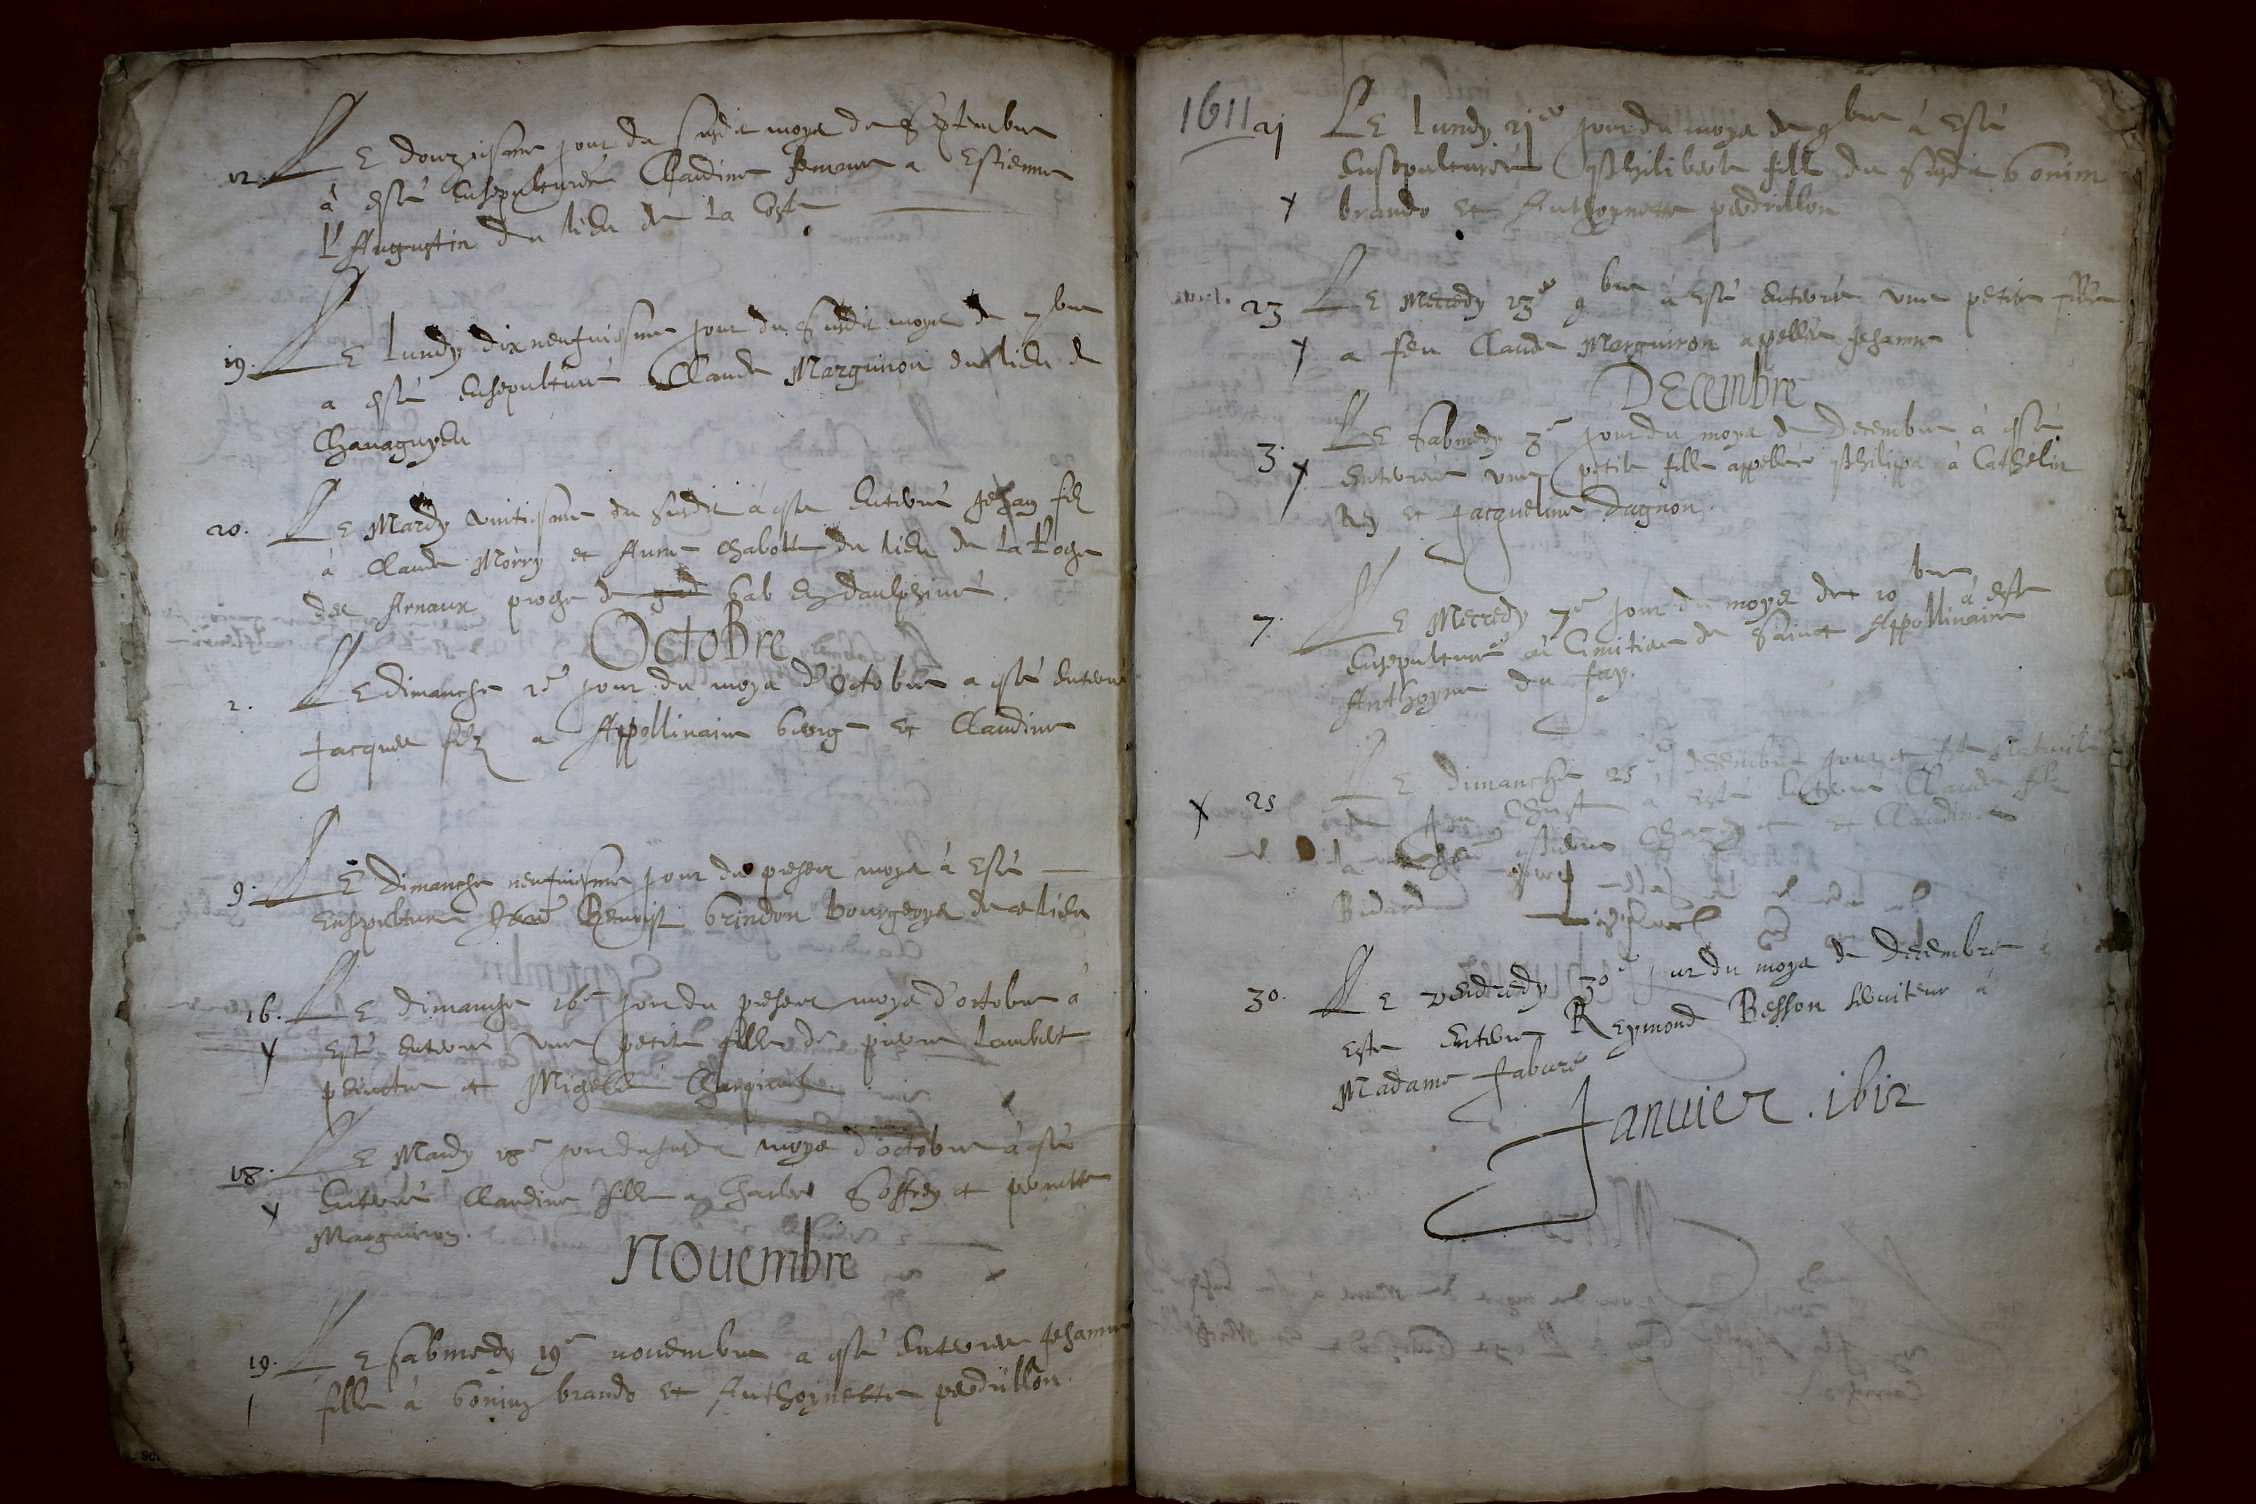 12. LE douziesme jour du susdit moys de Septembre
à esté ensepulturée Claudine femme a Estienne
l'Augustin du lieu de la Coste
19. LE lundy dixneufuiesme jour du susdit moys de 7bre
a esté ensepulturé Claude Marguiron du lieu de
Chauagnyeu
20. LE Mardy vintiesme du susdit à esté enterré Jehan filz
à Claude Morry et Anne Chabotte du lieu de la Roche
des Arnaux proche de gad Gab en daulphiné.
Octobre
2. LE dimanche 2e jour du moys d'Octobre a esté enterré
Jacques filz a Appollinaire George et Claudine
9. LE dimanche neufuiesme jour du present moys à Esté
ensepulturé Benoist Grindon bourgeoys de ce lieu
16. LE dimanche 16e jour du present moys d'octobre à
esté enterré une petite fille de pierre Lambert
peinctre et Michelle
18. LE Mardy 18e jour du susdit moys d'octobre à esté
Enterré Claudine fille a Charles Soffrey et pernette
Marguiron.
Nouembre
19. LE sabmedy 19e nouembre a esté enterrée Jehanne
fille à Gonin brando et Anthoynette perdrillon.
1611 21 LE lundy 21e jour du moys de 9bre à Esté
Ensepulturée Philiberte fille du susdit Gonin
brando et Anthoynette perdrillon
23 LE Mecredy 23e 9bre à Esté enterrée une petite fille
a feu Claude Marguiron apellée Jehanne
Decembre
3. LE sabmedy 3e jour du moys de Decembre à esté
enterrée une petite fille appellée Philippa à Cathelin
Rey et Jacqueline Dagnon.
7. LE Mecredy 7e jour du moys de 10bre à esté
Ensepulturé au Cimitiere de Sainct Appollinaire
Anthoyne du fay.
25 LE dimanche 25e decembre jour et feste natiuité
de Jesu Christ a esté enterré Claude filz
à Estienne et Claudine
Bidard
30. LE vendredy 30e jour du moys de decembre à
este enterré Reymond Besson seruiteur à
Madame Fabure
Januier. 1612